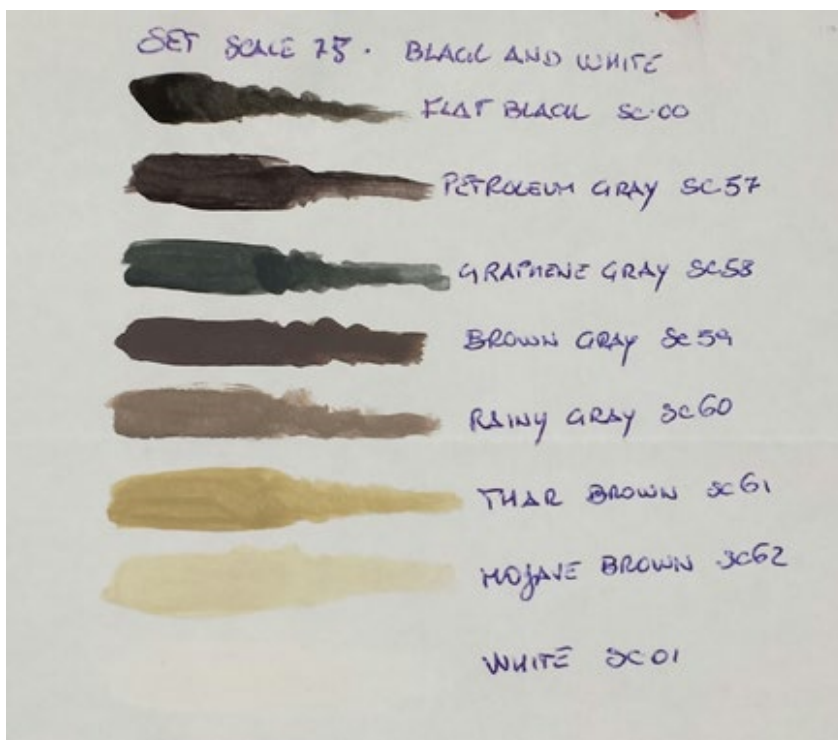 SET SCALE 75. BLACK AND WHITE
FLAT BLACK SC-00
PETROLEUM GRAY SC57
GRAPHENE GRAY SC58
BROWN GRAY SC59
RAINY GRAY SC60
THAR BROWN SC61
MOJAVE BROWN SC62
WHITE SC01